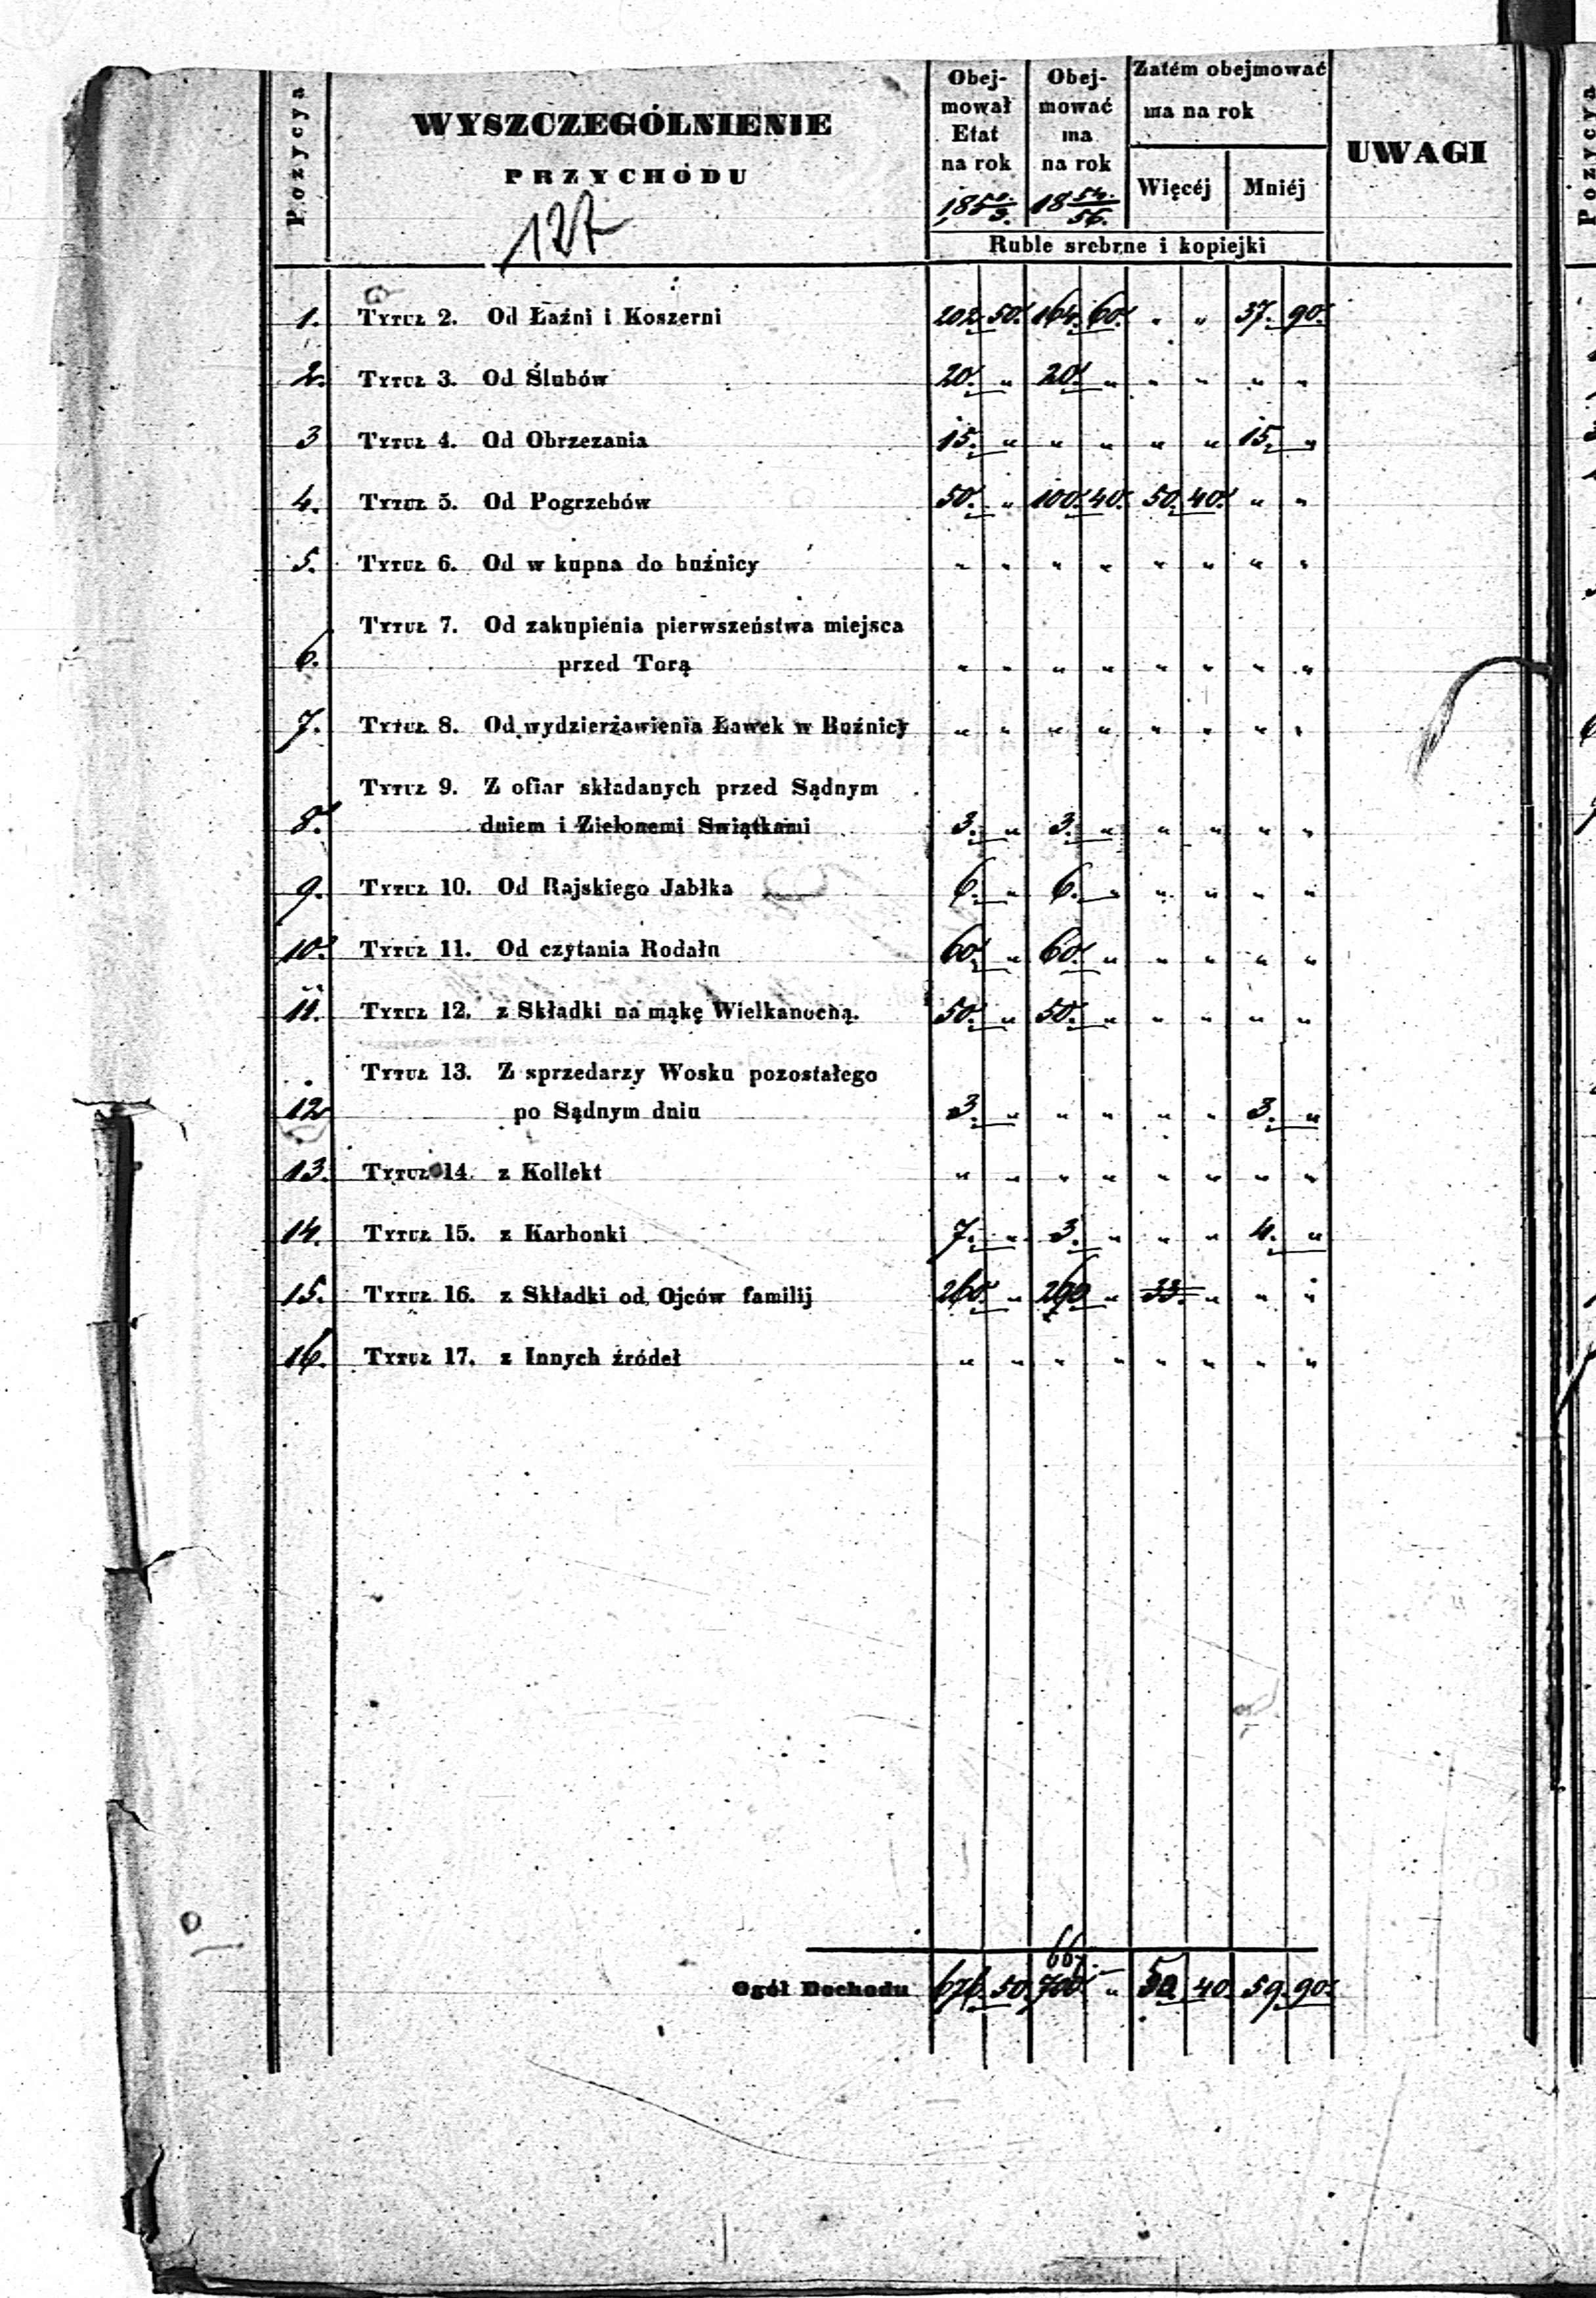 Pozycya
WYSZCZEGÓLNIENIE
PRZYCHODU
127
Obejmował Etat na rok 185 0/3.
Obejmować ma na rok 18 54/56.
Zatém obejmować ma na rok
Więcéj
Mniéj
UWAGI
Ruble srebrne i kopiejki
1. Tytuł 2. Od Łaźni i Koszerni 202. 50. 164. 60. „ „ 37. 90.
2. Tytuł 3. Od Ślubów 20. „ 20. „ „ „ „ „
3 Tytuł 4. Od Obrzezania 15. „ „ „ „ „ 15. „
4. Tytuł 5. Od Pogrzebów 50. „ 100. 40. 50. 40. „ „
5. Tytuł 6. Od w kupna do buźnicy „ „ „ „ „ „ „ „
Tytuł 7. Od zakupienia pierwszeństwa miejsca
6. przed Torą „ „ „ „ „ „ „ „
7. Tytuł 8. Od wydzierżawienia Ławek w Buźnicy „ „ „ „ „ „ „ „
Tytuł 9. Z ofiar składanych przed Sądnym
8. dniem i Zielonemi Swiątkami 3. „ 3. „ „ „ „ „
9. Tytuł 10. Od Rajskiego Jabłka 6. „ 6. „ „ „ „ „
10. Tytuł 11. Od czytania Rodału 60. „ 60. „ „ „ „ „
11. Tytuł 12. z Składki na mąkę Wielkanocną. 50. „ 50. „ „ „ „ „
Tytuł 13. Z sprzedarzy Wosku pozostałego
12 po Sądnym dniu 3. „ „ „ „ „ 3. „
13. Tytuł 14. z Kollekt „ „ „ „ „ „ „ „
14. Tytuł 15. z Karbonki 7. „ 3. „ „ „ 4. „
15. Tytuł 16. z Składki od Ojców familij 260. „ 260 „ 33. „ „ „
16. Tytuł 17. z Innych źródeł „ „ „ „ „ „ „ „
667.
Ogół Dochodu 676. 50. 700 „ 50 40. 59. 90.
Pozycya